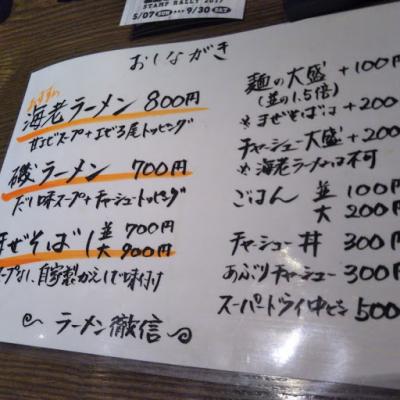 STAMP RALLY 2017
5/07 SUN 9/30 SAT
おしながき
おすすめ
海老ラーメン 800円
甘エビスープ+エビ3尾トッピング
磯ラーメン 700円
だし味スープ+チャーシュートッピング
まぜそば 並 700円
大 900円
スープなし、自家製かえしで味付
ラーメン徹信
麺の大盛 +100円
(並の1.5倍)
※まぜそばは +200
チャーシュー大盛 +200
※海老ラーメンは不可
ごはん 並 100円
大 200円
チャーシュー丼 300円
あぶりチャーシュー 300円
スーパードライ中ビン 500